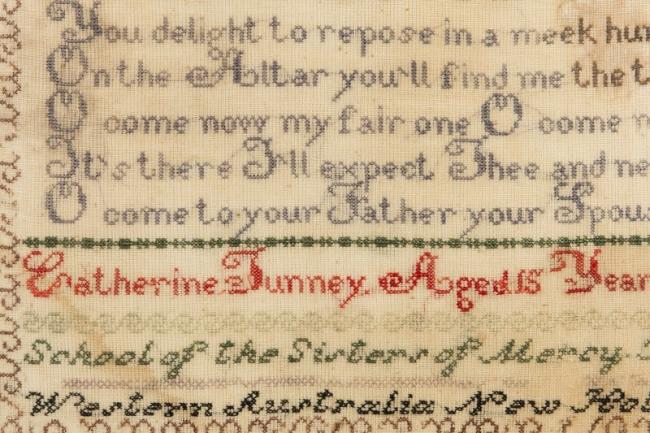 You delight to repose in a meek hum
On the Altar you'll find me the t
O come now my fair one O come n
It's there I'll expect Thee and ne
O come to your Father your Spous
Catherine Tunney Aged 15 Year
School of the Sisters of Mercy
Western Australia New Hol